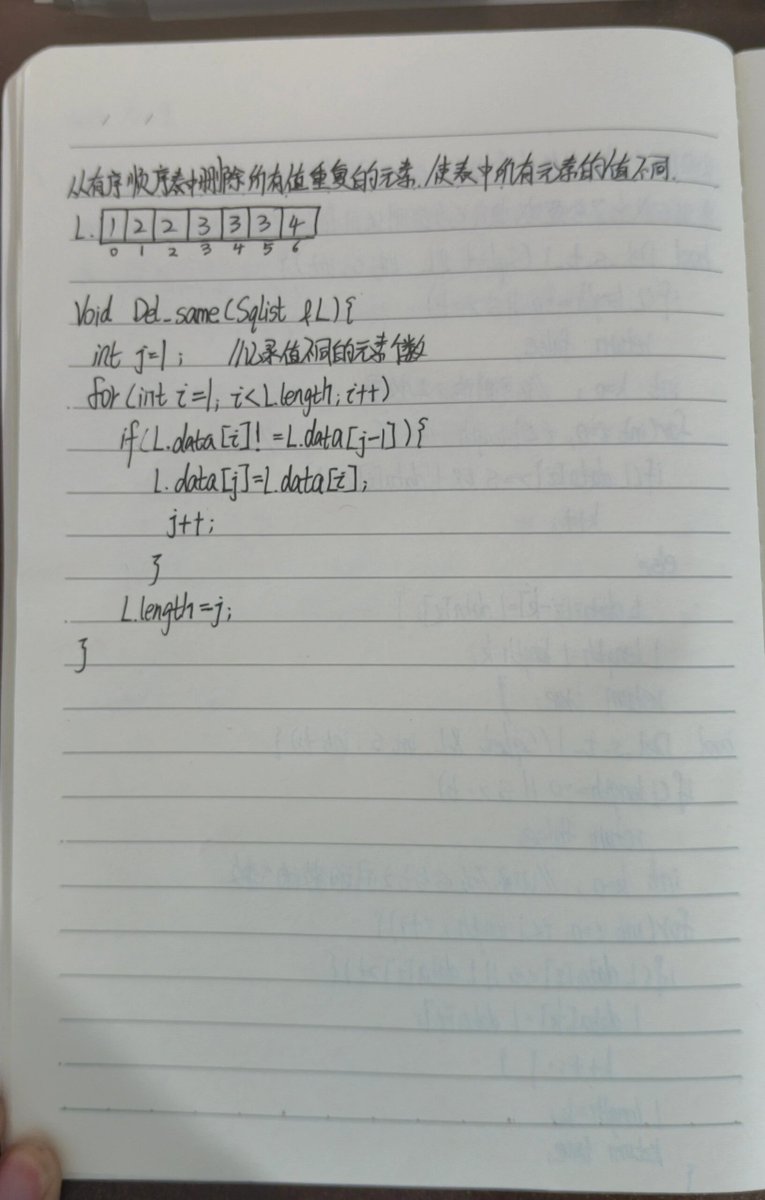 从有序顺序表中删除所有值重复的元素,使表中所有元素的值不同.
L. 1 2 2 3 3 3 4
0 1 2 3 4 5 6
Void Del_same(Sqlist &L){
int j=1; //记录值不同的元素个数
for(int i=1; i<L.length; i++)
if(L.data[i]!=L.data[j-1]){
L.data[j]=L.data[i];
j++;
}
L.length=j;
}